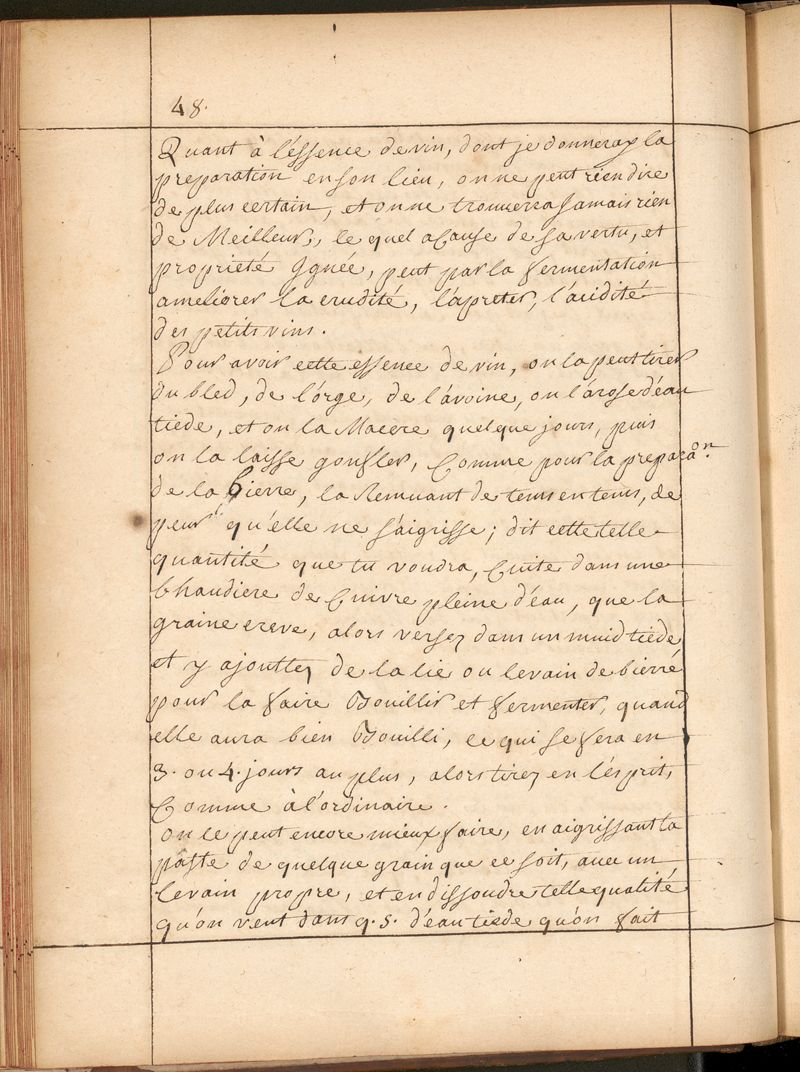 48.
Quant à l'éssence de vin, dont je donneray la
preparation en son lieu, on ne peut rien dire
de plus certain, et on ne trouuerra Jamais rien
de Meilleur, le quel a Cause de sa vertu, et
proprieté Ignée, peut par la fermentation
ameliorer la crudité, l'apreter, l'acidité
des petits vins.
Pour avoir cette essence de vin, on la peut tirer
du bled, de l'orge, de l'avoine, on l'arose d'eau
tiede, et on la Macere quelque jours, puis
on la laisse gonfler, Comme pour la preparaon.
de la bierre, la Remuant de tems en tems, de
peur qu'elle ne s'aigrisse; dit cette telle
quantité que tu voudra, Cuite dans une
Chaudiere de Cuivre pleine d'eau, que la
graine creve, alors versez dans un muid tiede
et y ajouttez de la lie ou levain de bierré
pour la faire Bouillir et fermenter, quand
elle aura bien Bouilli, ce qui se fera en
3. ou 4. jours au plus, alors tirez en l'ésprit,
Comme à l'ordinaire.
on le peut encore mieux faire, en aigrissant la
paste de quelque grain que ce soit, avec un
levain propre, et en dissoudre telle qualité
qu'on veut dans q.s. d'eau tiede qu'on fait